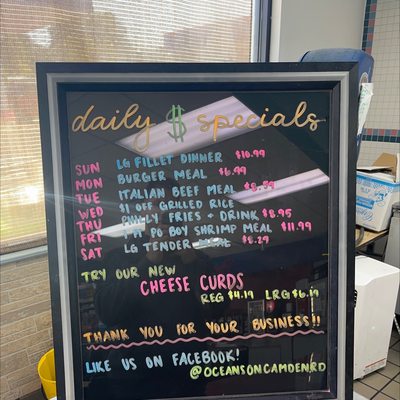 daily $ specials
SUN LG FILLET DINNER $10.99
MON BURGER MEAL $6.99
TUE ITALIAN BEEF MEAL
WED $1 OFF GRILLED RICE
THU PHILLY FRIES + DRINK $8.95
FRI PO BOY SHRIMP MEAL $11.99
SAT LG TENDER $8.29
TRY OUR NEW
CHEESE CURDS
REG $4.19 LRG $6.19
THANK YOU FOR YOUR BUSINESS!!
LIKE US ON FACEBOOK!
@OCEANSONCAMDENRD